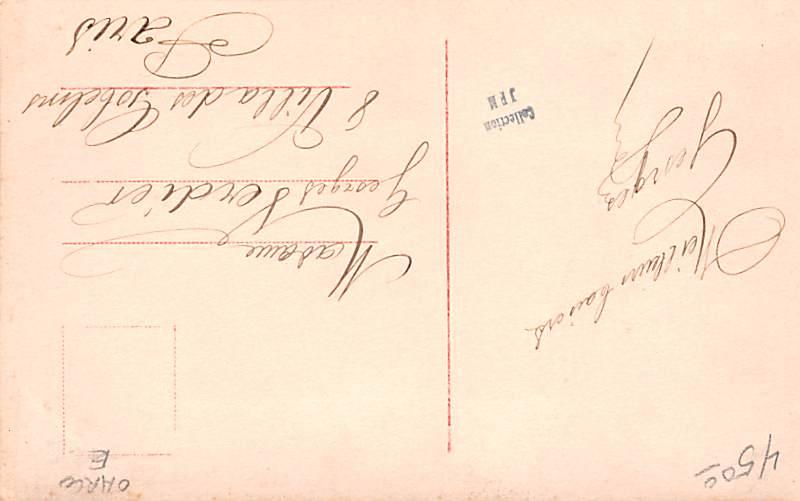 Meilleurs baisers
Georges
Collection
JPM
Madame
Georges Verdier
8 Villa des Gobelins
Paris
4500
E